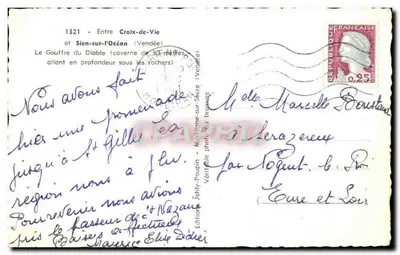 1321 - Entre Croix-de-Vie
et Sion-sur-l'Océan (Vendée)
Le Gouffre du Diable (caverne de 30 mètres
allant en profondeur sous les rochers)
Nous avons fait
hier une promenade
jusqu'à St Gilles La
region nous à plu.
Pour revenir nous avions
pris le passeur de St Nazaire
Baisers
Maurice Elise Didier
Editions Jehly-Poupin - Mortagne-sur-Sèvre (Vendée)
Véritable photo au bromure
REPUBLIQUE FRANÇAISE
0,25
POSTES
Marcelle
à
par Nogent le Roi
Eure et Loir